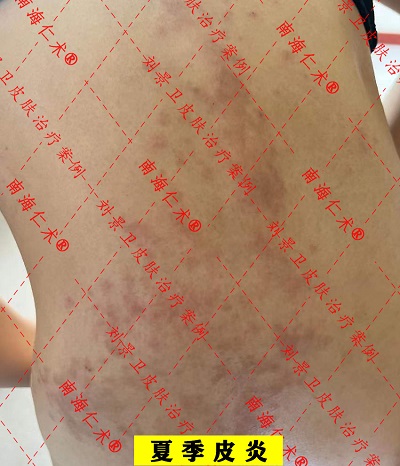 南海仁术®
南海仁术®
刘景卫皮肤治疗案例
刘景卫皮肤治疗案例
南海仁术®
南海仁术®
南海仁术®
刘景卫皮肤治疗案例
刘景卫皮肤治疗案例
刘景卫皮肤治疗案例
刘景卫皮肤治疗案例
南海仁术®
南海仁术®
夏季皮炎